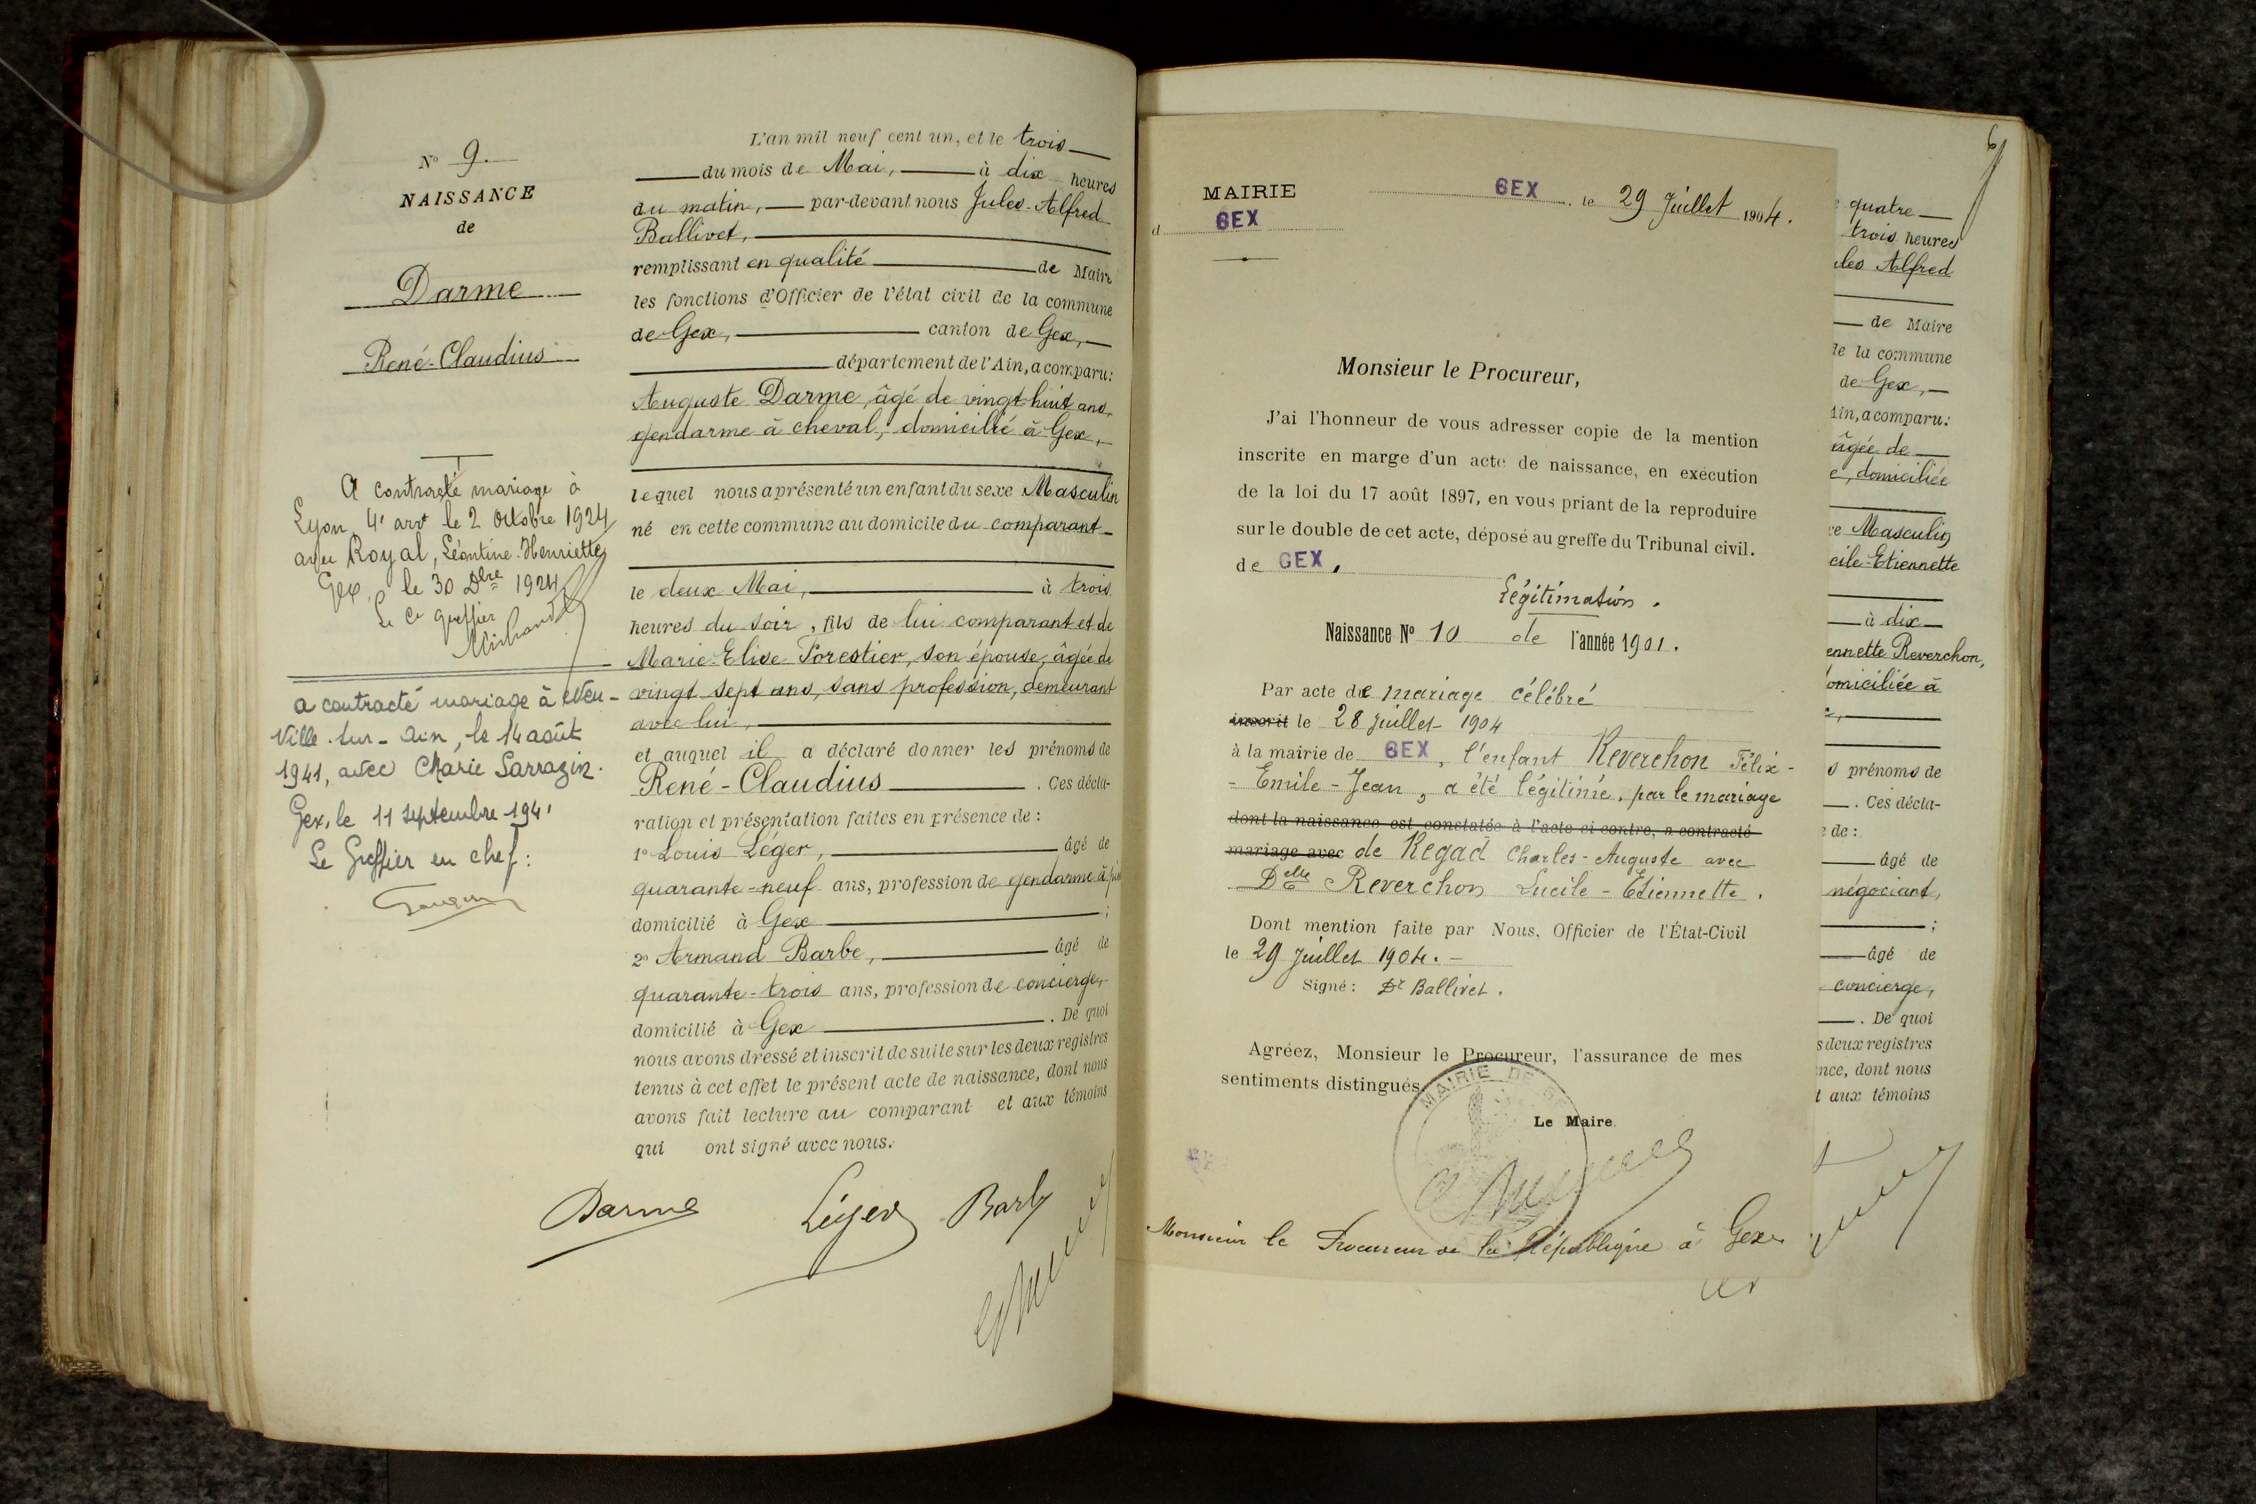 N° 9.
NAISSANCE
de
Darme
René-Claudius
A contracté mariage à
Lyon 4e arrt le 2 Octobre 1924
avec Royal, Léontine-Henriette
Gex, le 30 Dbre 1924
Le Cs greffier
a contracté mariage à Neu-
ville-sur-Ain, le 14 août
1941, avec Marie Sarrazin.
Gex, le 11 septembre 1941
Le Greffier en chef :
L'an mil neuf cent un, et le trois
du mois de Mai, à dix heures
du matin, par-devant nous Jules-Alfred
Ballivet,
remplissant en qualité de Maire
les fonctions d'Officier de l'état civil de la commune
de Gex, canton de Gex,
département de l'Ain, a comparu:
Auguste Darme, âgé de vingt-huit ans,
gendarme à cheval, domicilié à Gex,
lequel nous a présenté un enfant du sexe Masculin
né en cette commune au domicile du comparant
le deux Mai, à trois
heures du soir, fils de lui comparant et de
Marie-Elise Forestier, son épouse, âgée de
vingt sept ans, sans profession, demeurant
avec lui,
et auquel il a déclaré donner les prénoms de
René-Claudius. Ces décla-
ration et présentation faites en présence de :
1° Louis Léger, âgé de
quarante-neuf ans, profession de gendarme à pied
domicilié à Gex ;
2° Armand Barbe, âgé de
quarante-trois ans, profession de concierge,
domicilié à Gex. De quoi
nous avons dressé et inscrit de suite sur les deux registres
tenus à cet effet le présent acte de naissance, dont nous
avons fait lecture au comparant et aux témoins
qui ont signé avec nous.
Darme Léger Barbe
MAIRIE
d GEX
GEX, le 29 Juillet 1904.
Monsieur le Procureur,
J'ai l'honneur de vous adresser copie de la mention
inscrite en marge d'un acte de naissance, en exécution
de la loi du 17 août 1897, en vous priant de la reproduire
sur le double de cet acte, déposé au greffe du Tribunal civil.
de GEX.
Légitimation.
Naissance N° 10 de l'année 1901.
Par acte de mariage célébré
inscrit le 28 Juillet 1904
à la mairie de GEX, l'enfant Reverchon Félix-
-Emile-Jean, a été légitimé, par le mariage
dont la naissance est constatée à l'acte ci-contre, a contracté
mariage avec de Regad Charles-Auguste avec
Delle Reverchon Lucile-Etiennette.
Dont mention faite par Nous, Officier de l'État-Civil
le 29 Juillet 1904.
Signé : Dr Ballivet.
Agréez, Monsieur le Procureur, l'assurance de mes
sentiments distingués.
MAIRIE DE GEX
Le Maire.
Monsieur le Procureur de la République à Gex
6
quatre
trois heures
les Alfred
de Maire
de la commune
de Gex,
Ain, a comparu:
âgée de
e, domiciliée
e Masculin
cile-Etiennette
à dix
ennette Reverchon,
domiciliée à
s prénoms de
. Ces décla-
de :
âgé de
négociant,
;
âgé de
concierge,
. De quoi
s deux registres
nce, dont nous
t aux témoins